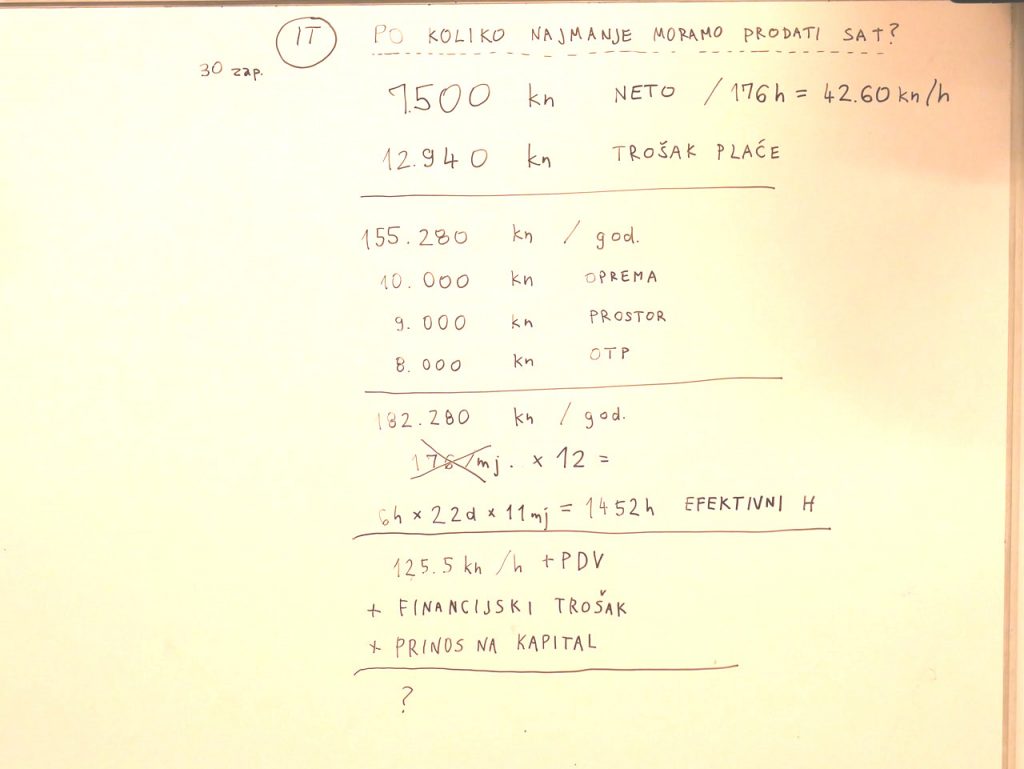 IT PO KOLIKO NAJMANJE MORAMO PRODATI SAT?
30 zap.
7.500 kn NETO / 176h = 42.60 kn/h
12.940 kn TROŠAK PLAĆE
155.280 kn / god.
10.000 kn OPREMA
9.000 kn PROSTOR
8.000 kn OTP
182.280 kn / god.
176/mj. x 12 =
6h x 22d x 11mj = 1452h EFEKTIVNI H
125.5 kn /h + PDV
+ FINANCIJSKI TROŠAK
+ PRINOS NA KAPITAL
?